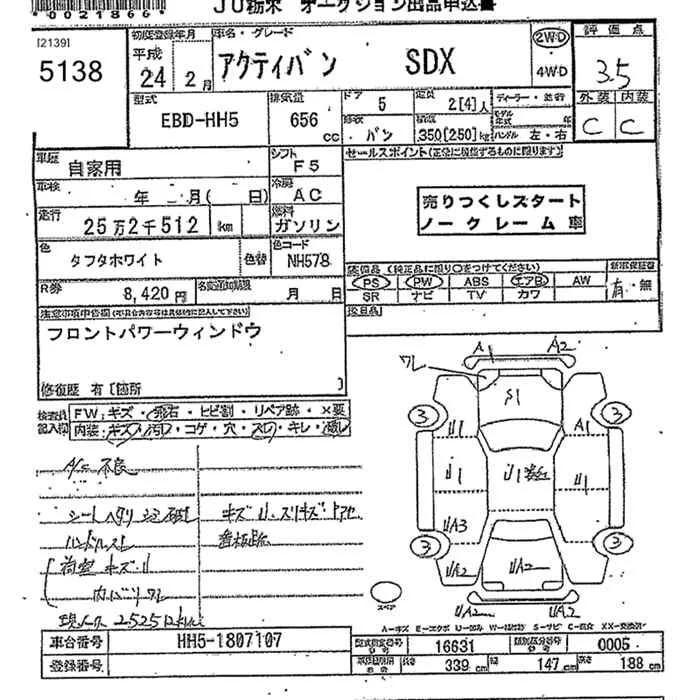 JU栃木 オークション出品申込書
00218661
[2139]
5138
初度登録年月
平成
24 2月
車名・グレード
アクティバン SDX
2WD
4WD
評価点
3.5
外装 内装
C C
型式
EBD-HH5
排気量
656 cc
ドア
5
バン
定員
2[4]人
積載
350[250]kg
ディーラー・並行
モデル年式 年
ハンドル 左・右
車歴
自家用
シフト
F5
車検
年 月( 日)
冷房
AC
走行
25万2千512 km
燃料
ガソリン
色
タフタホワイト
色替
色コード
NH578
R券
8,420円
名変通知期限
月 日
セールスポイント(正常に機能するものに限ります)
売りつくしスタート
ノークレーム車
装備品 (純正品に限り○をつけてください)
PS PW ABS エアB AW
SR ナビ TV カワ
新車保証書
有・無
注意事項申告欄
フロントパワーウィンドウ
修復歴 有 [箇所 ]
検査員記入欄
FW:キズ・飛石・ヒビ割・リペア跡・×要
内装:キズ・汚れ・コゲ・穴・スレ・キレ・
A/C不良
シートヘタリ
ハンドルスレ
荷室キズU
内バリワレ
キズU・スリキズ
ワレ
A1 A2
S1
3 3
U1 A1
U1 U1 U1
UA3
3 3
UA2 UA2 U2
UA2 UA2
スペア
A-キズ E-エクボ U-凹み W-補修跡 S-サビ C-腐食 XX-交換済
車台番号
HH5-1807107
登録番号
型式指定番号
16631
類別区分番号
0005
長さ 339cm
幅 147cm
高さ 188cm